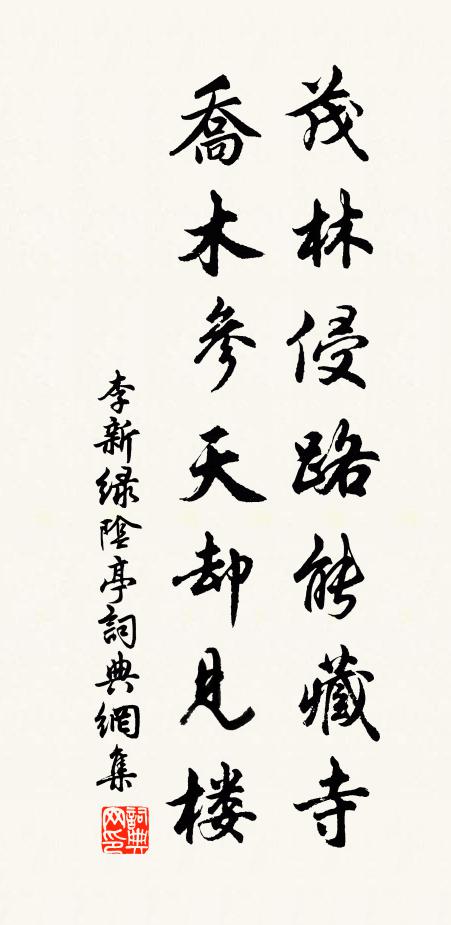 茂林侵路能藏寺
喬木參天却見楼
李新绿陰亭詞典網集
詞典网印